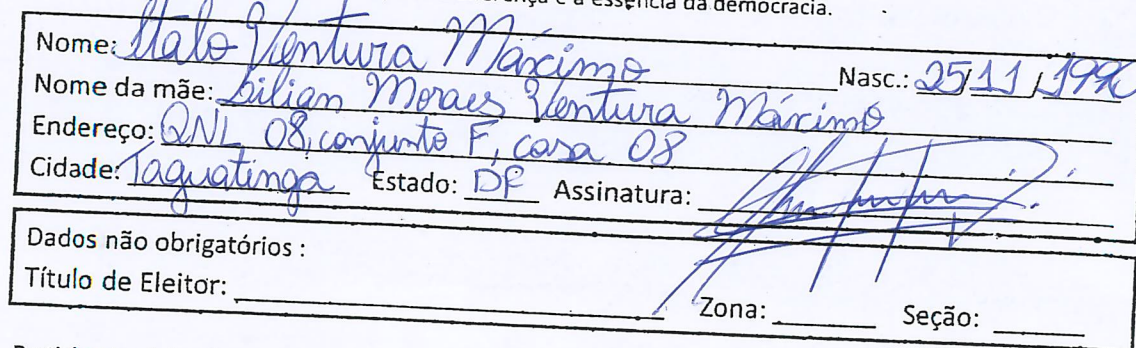 é a essência da democracia.
Nome: Italo Ventura Máximo Nasc.: 25/11/1990
Nome da mãe: Lilian Moraes Ventura Máximo
Endereço: QNL 08, conjunto F, casa 08
Cidade: Taguatinga Estado: DF Assinatura:
Dados não obrigatórios :
Título de Eleitor: Zona: Seção: